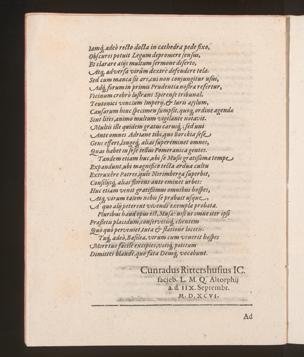 Iamq́; adeò recto docta in cathedra pede fixo,
Obscuros potuit Legum depromere sensus,
Et clarare atris multum sermone diserto,
Atq́; adversa virûm dexerè defendere tela.
Sed cum manca sit ars, cui non conjungitur usus,
Adq́; forum in primis Prudentia nostra refertur,
Vicinum crebrò lustrans Spirense tribunal.
Teutonici vincium Imperij, & Iuris asylum,
Causarum hinc specimen sumpsit, quoq́; ordine agenda
Sint lites, animo multum vigilante notavit.
Multis ille quidem gratus carusq́;, sed uni
Ante omnes Adriane tibi, quo Borchia
Gens effert, longeq́; alias supereminet omnes,
Quas habet in sese tellus Pomerania gentes.
Tandem etiam huc, ubi se Musis gratissima tempe
Expandunt, ubi magnifico tecta ardua cultu
Extruxêre Patres, queîs Norimberga superbit,
Consilijsq́; alias florens ante eminet urbes:
Huc etiam venit gratissimus omnibus hospes,
Atq́; virum talem nobis se probavit usque.
A quo alij peterent vivendi exempla probata.
Pluribus haud opus est, Musa: nisi ut omine iter ipsi
Prosperū placidum, conservetisq́; clientem
Quò quò perveniet tuta & statione locetis.
Tuq́; adeò, Basilea, virum cum venerit hospes
Moretus facilè excipies, votisq́; potitum
Dimittes blandè, quo fata Deusq́; vocabunt.
Cunradus Rittershusius IC.
facieb. L. M. Q. Altorphij
a. d. IIX. Septembr.
M. D. XCVI.
Ad